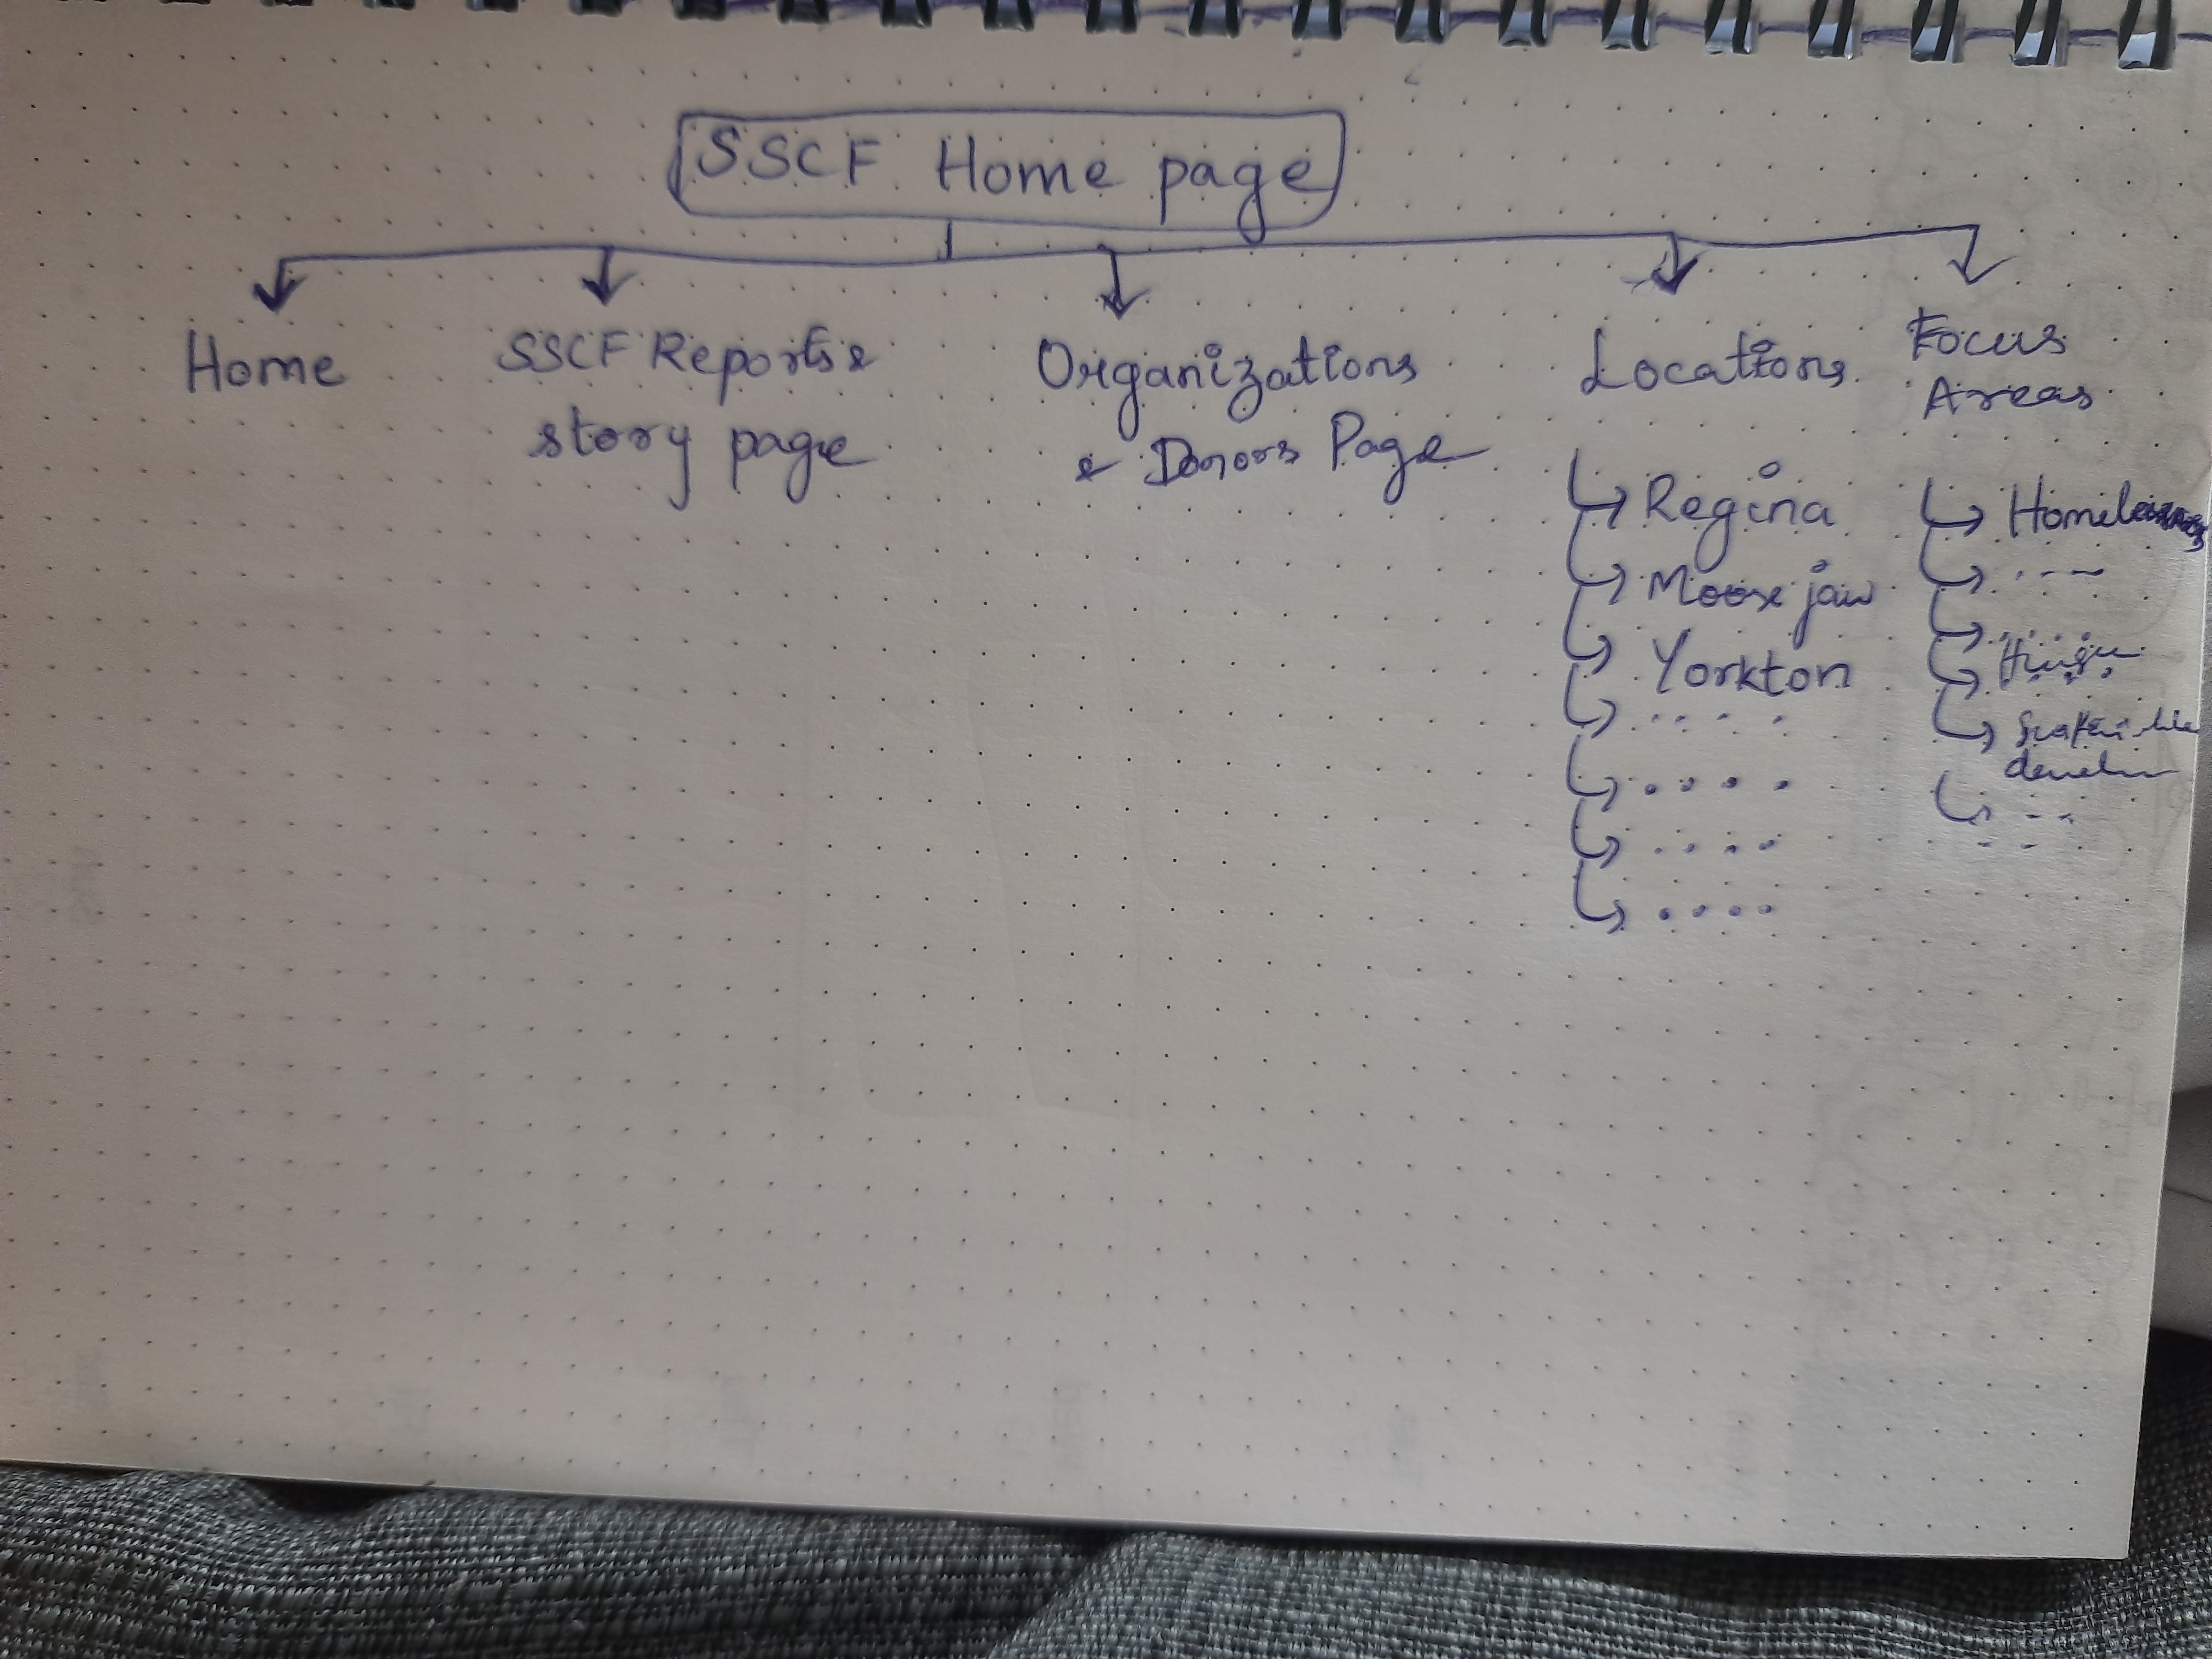 SSCF Home page
Home
SSCF Reports &
story page
Organizations
& Donors Page
Locations
Regina
Moose jaw
Yorkton
. . . .
. . . .
. . . .
. . . .
Focus
Areas
. - - -
. . . . .
- -